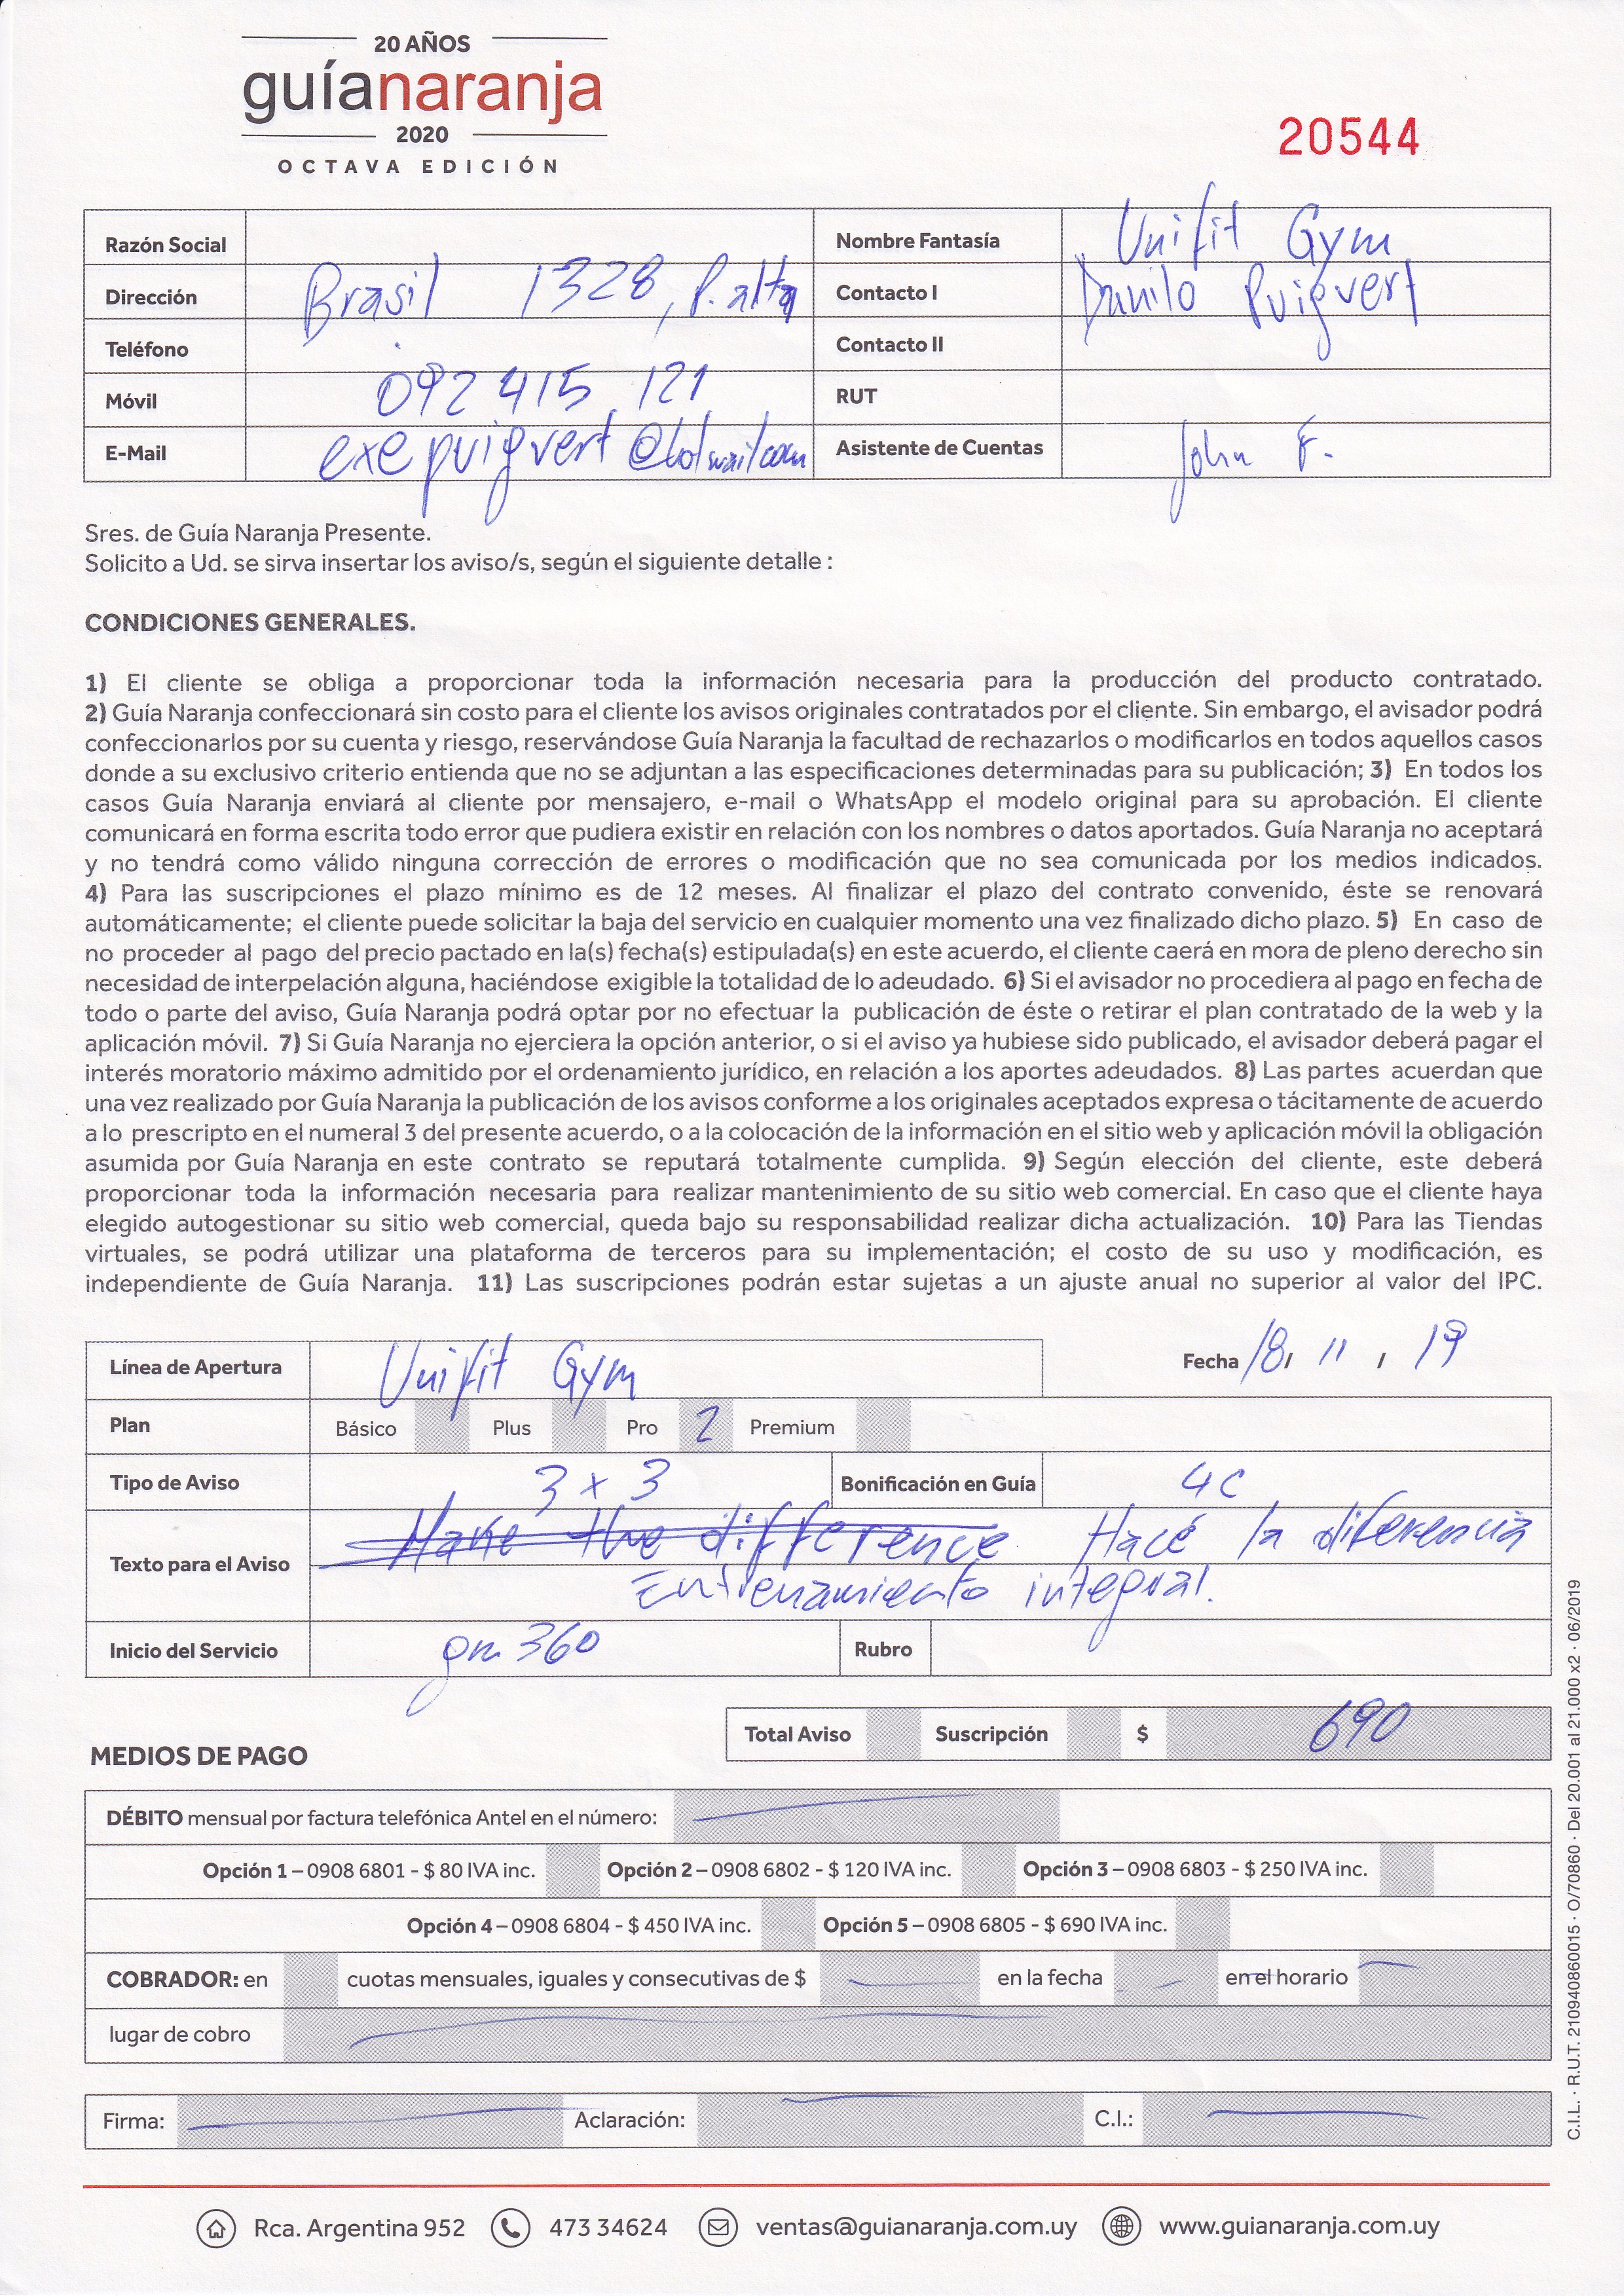 20 AÑOS
guíanaranja
2020
OCTAVA EDICIÓN
20544
Razón Social
Nombre Fantasía Unifit Gym
Dirección Brasil 1328, P. alta
Contacto I Danilo Puigvert
Teléfono
Contacto II
Móvil 092 415 121
RUT
E-Mail exepuigvert@hotmail.com
Asistente de Cuentas John F.
Sres. de Guía Naranja Presente.
Solicito a Ud. se sirva insertar los aviso/s, según el siguiente detalle :
CONDICIONES GENERALES.
1) El cliente se obliga a proporcionar toda la información necesaria para la producción del producto contratado.
2) Guía Naranja confeccionará sin costo para el cliente los avisos originales contratados por el cliente. Sin embargo, el avisador podrá
confeccionarlos por su cuenta y riesgo, reservándose Guía Naranja la facultad de rechazarlos o modificarlos en todos aquellos casos
donde a su exclusivo criterio entienda que no se adjuntan a las especificaciones determinadas para su publicación; 3) En todos los
casos Guía Naranja enviará al cliente por mensajero, e-mail o WhatsApp el modelo original para su aprobación. El cliente
comunicará en forma escrita todo error que pudiera existir en relación con los nombres o datos aportados. Guía Naranja no aceptará
y no tendrá como válido ninguna corrección de errores o modificación que no sea comunicada por los medios indicados.
4) Para las suscripciones el plazo mínimo es de 12 meses. Al finalizar el plazo del contrato convenido, éste se renovará
automáticamente; el cliente puede solicitar la baja del servicio en cualquier momento una vez finalizado dicho plazo. 5) En caso de
no proceder al pago del precio pactado en la(s) fecha(s) estipulada(s) en este acuerdo, el cliente caerá en mora de pleno derecho sin
necesidad de interpelación alguna, haciéndose exigible la totalidad de lo adeudado. 6) Si el avisador no procediera al pago en fecha de
todo o parte del aviso, Guía Naranja podrá optar por no efectuar la publicación de éste o retirar el plan contratado de la web y la
aplicación móvil. 7) Si Guía Naranja no ejerciera la opción anterior, o si el aviso ya hubiese sido publicado, el avisador deberá pagar el
interés moratorio máximo admitido por el ordenamiento jurídico, en relación a los aportes adeudados. 8) Las partes acuerdan que
una vez realizado por Guía Naranja la publicación de los avisos conforme a los originales aceptados expresa o tácitamente de acuerdo
a lo prescripto en el numeral 3 del presente acuerdo, o a la colocación de la información en el sitio web y aplicación móvil la obligación
asumida por Guía Naranja en este contrato se reputará totalmente cumplida. 9) Según elección del cliente, este deberá
proporcionar toda la información necesaria para realizar mantenimiento de su sitio web comercial. En caso que el cliente haya
elegido autogestionar su sitio web comercial, queda bajo su responsabilidad realizar dicha actualización. 10) Para las Tiendas
virtuales, se podrá utilizar una plataforma de terceros para su implementación; el costo de su uso y modificación, es
independiente de Guía Naranja. 11) Las suscripciones podrán estar sujetas a un ajuste anual no superior al valor del IPC.
Línea de Apertura Unifit Gym
Fecha 18/ 11 / 19
Plan Básico Plus Pro 2 Premium
Tipo de Aviso 3 x 3 Bonificación en Guía 4c
Make the difference Hacé la diferencia
Texto para el Aviso
Entrenamiento integral.
Inicio del Servicio gn 360 Rubro
Total Aviso Suscripción $ 690
MEDIOS DE PAGO
DÉBITO mensual por factura telefónica Antel en el número:
Opción 1 – 0908 6801 - $ 80 IVA inc. Opción 2 – 0908 6802 - $ 120 IVA inc. Opción 3 – 0908 6803 - $ 250 IVA inc.
Opción 4 – 0908 6804 - $ 450 IVA inc. Opción 5 – 0908 6805 - $ 690 IVA inc.
COBRADOR: en cuotas mensuales, iguales y consecutivas de $ en la fecha en el horario
lugar de cobro
Firma: Aclaración: C.I.:
Rca. Argentina 952 473 34624 ventas@guianaranja.com.uy www.guianaranja.com.uy
C.I.L. · R.U.T. 210940860015 · O/70860 · Del 20.001 al 21.000 x2 · 06/2019